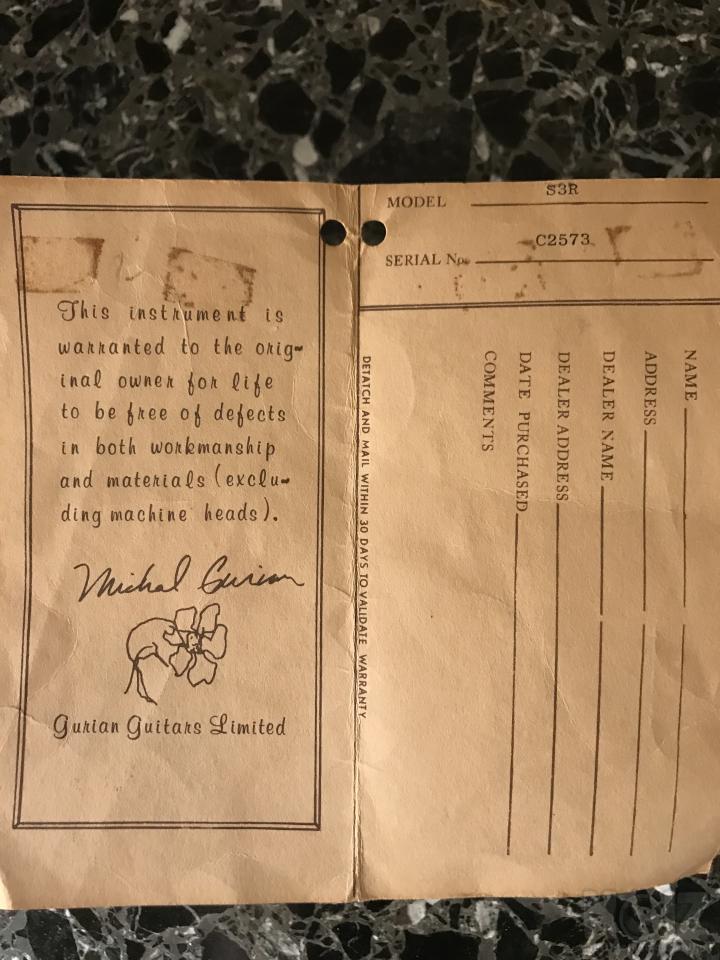 This instrument is
warranted to the orig-
inal owner for life
to be free of defects
in both workmanship
and materials (exclu-
ding machine heads).
Michael Gurian
Gurian Guitars Limited
MODEL S3R
SERIAL No. C2573
DETATCH AND MAIL WITHIN 30 DAYS TO VALIDATE WARRANTY
NAME
ADDRESS
DEALER NAME
DEALER ADDRESS
DATE PURCHASED
COMMENTS